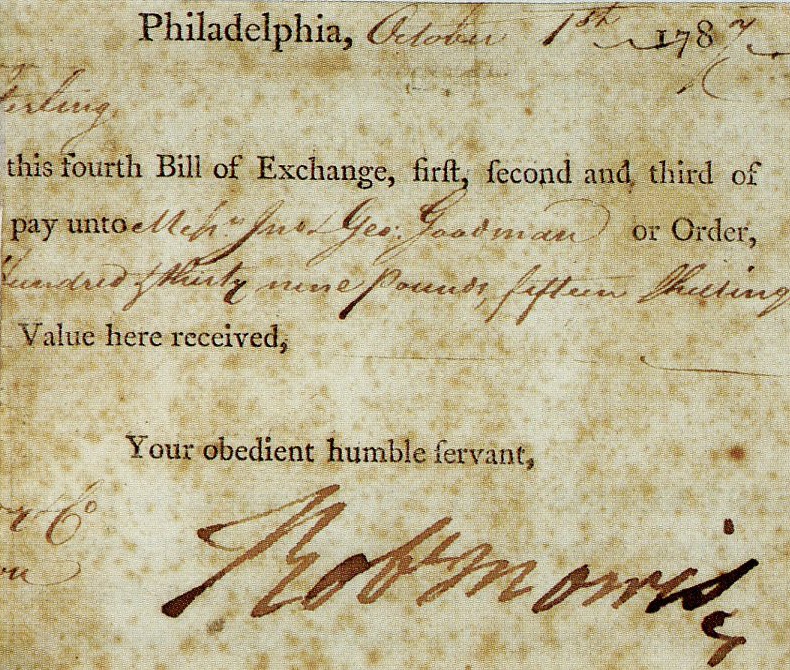 Philadelphia, October 1st 1787
Sterling
this fourth Bill of Exchange, firſt, ſecond and third of
pay unto Meſsrs. Jno. & Geo: Goodman or Order,
Hundred & thirty nine Pounds, fifteen Shilling
Value here received,
Your obedient humble ſervant,
& Co
Robt Morris